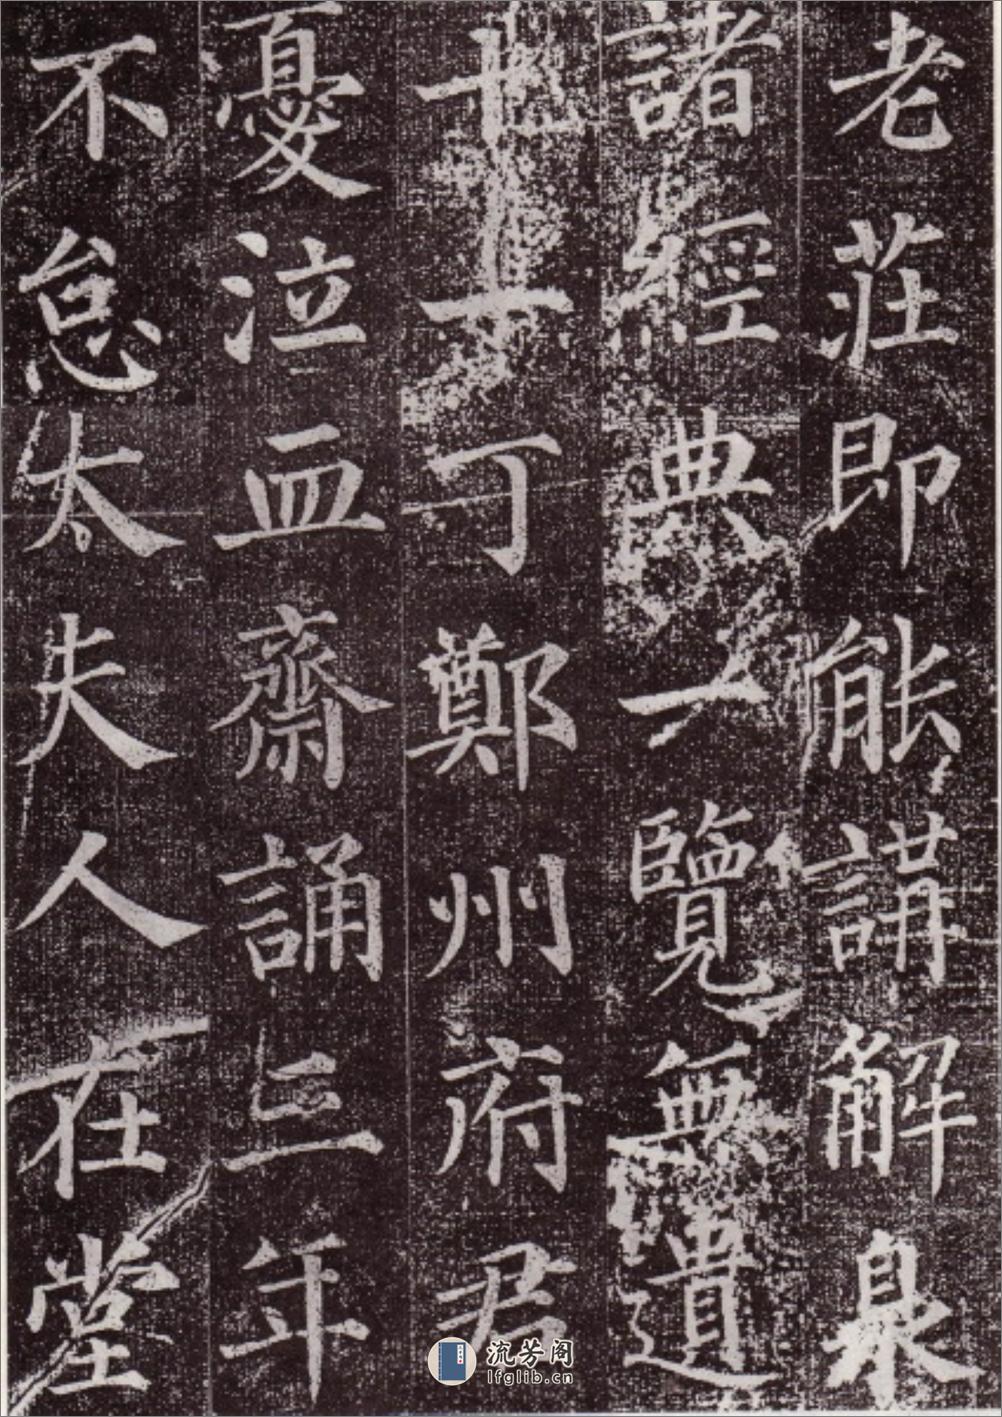 老莊即能講解臮
諸經典一覽無遺
十一丁鄭州府君
憂泣血齋誦三年
不怠太夫人在堂
流芳阁
lfglib.cn